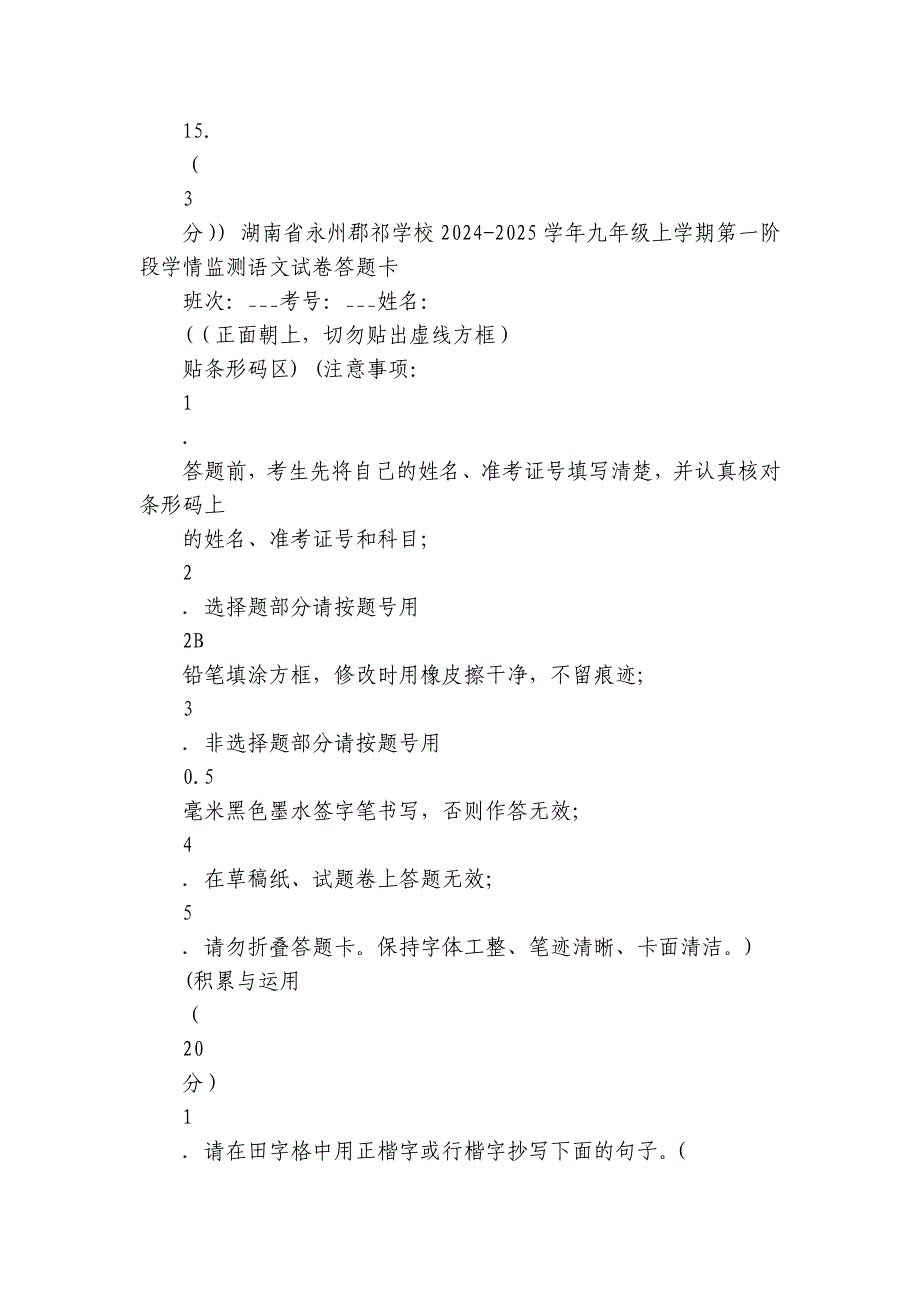 15.
(
3
分)) 湖南省永州郡祁学校 2024-2025 学年九年级上学期第一阶
段学情监测语文试卷答题卡
班次：___考号：___姓名：
((正面朝上，切勿贴出虚线方框)
贴条形码区) (注意事项：
1
.
答题前，考生先将自己的姓名、准考证号填写清楚，并认真核对
条形码上
的姓名、准考证号和科目；
2
. 选择题部分请按题号用
2B
铅笔填涂方框，修改时用橡皮擦干净，不留痕迹；
3
. 非选择题部分请按题号用
0.5
毫米黑色墨水签字笔书写，否则作答无效；
4
. 在草稿纸、试题卷上答题无效；
5
. 请勿折叠答题卡。保持字体工整、笔迹清晰、卡面清洁。)
(积累与运用
(
20
分)
1
. 请在田字格中用正楷字或行楷字抄写下面的句子。(